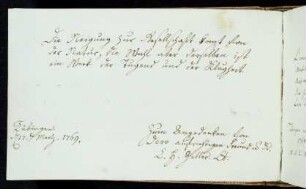 Die Neigung zur Gesellschaft komt von
der Natur, die Wahl aber derselben ist
ein Werk der Tugend und der Klugheit.
Tübingen
1769.
Zum Angedenken von
Dero aufrichtigen Freund u. D.